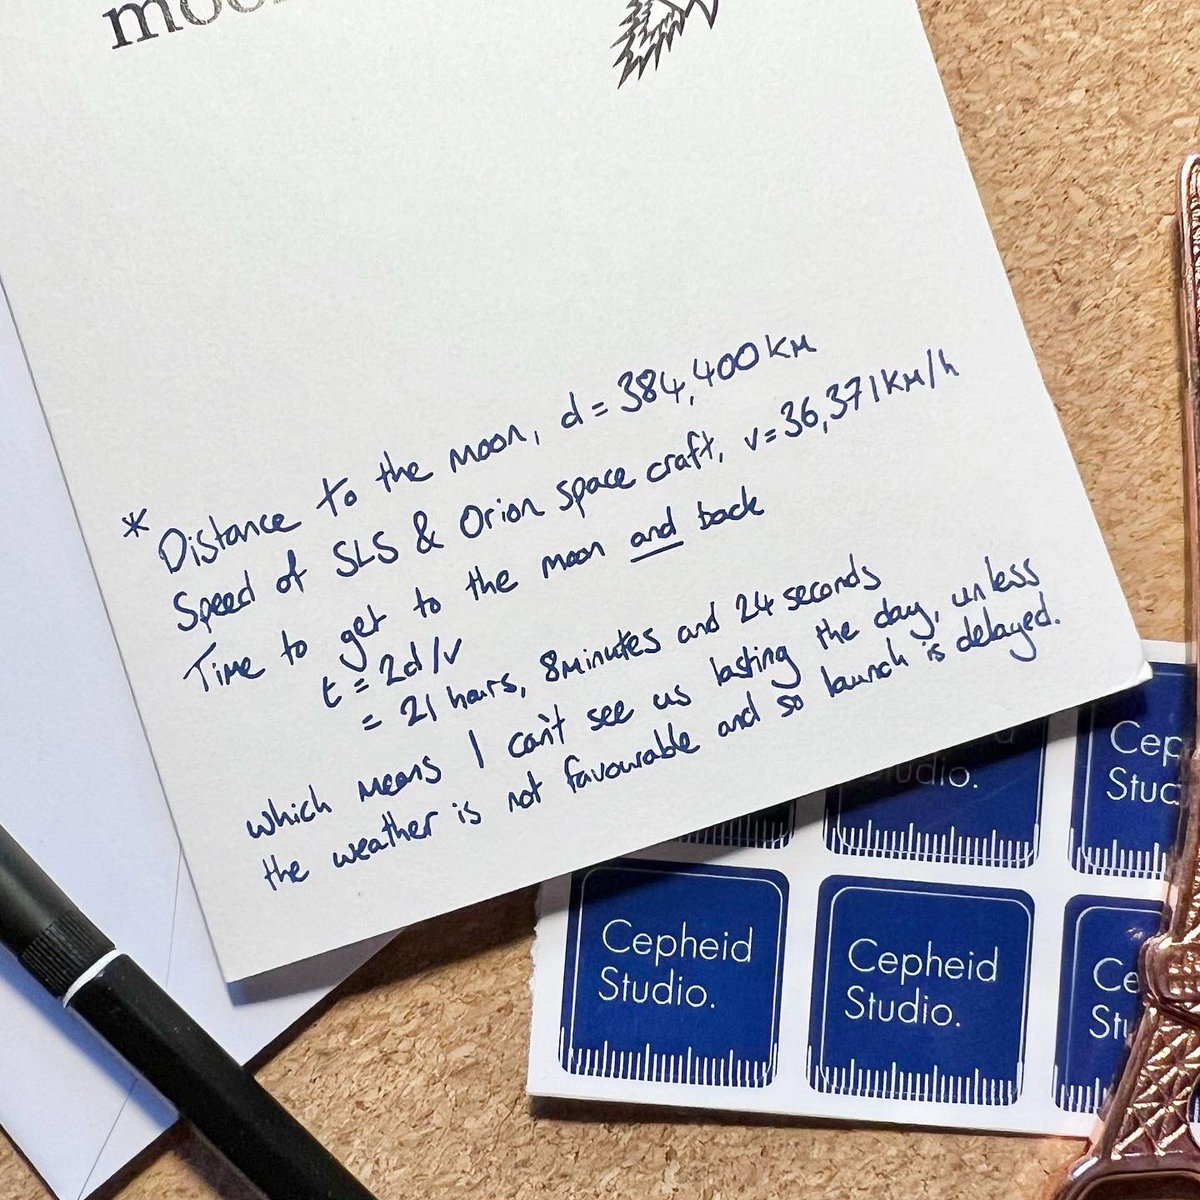 * Distance to the moon, d = 384,400 km
Speed of SLS & Orion space craft, v = 36,371 km/h
Time to get to the moon and back
t = 2d/v
= 21 hours, 8 minutes and 24 seconds
which means I can't see us lasting the day, unless
the weather is not favourable and so launch is delayed.
Studio.
Cepheid
Studio.
Cepheid
Studio.